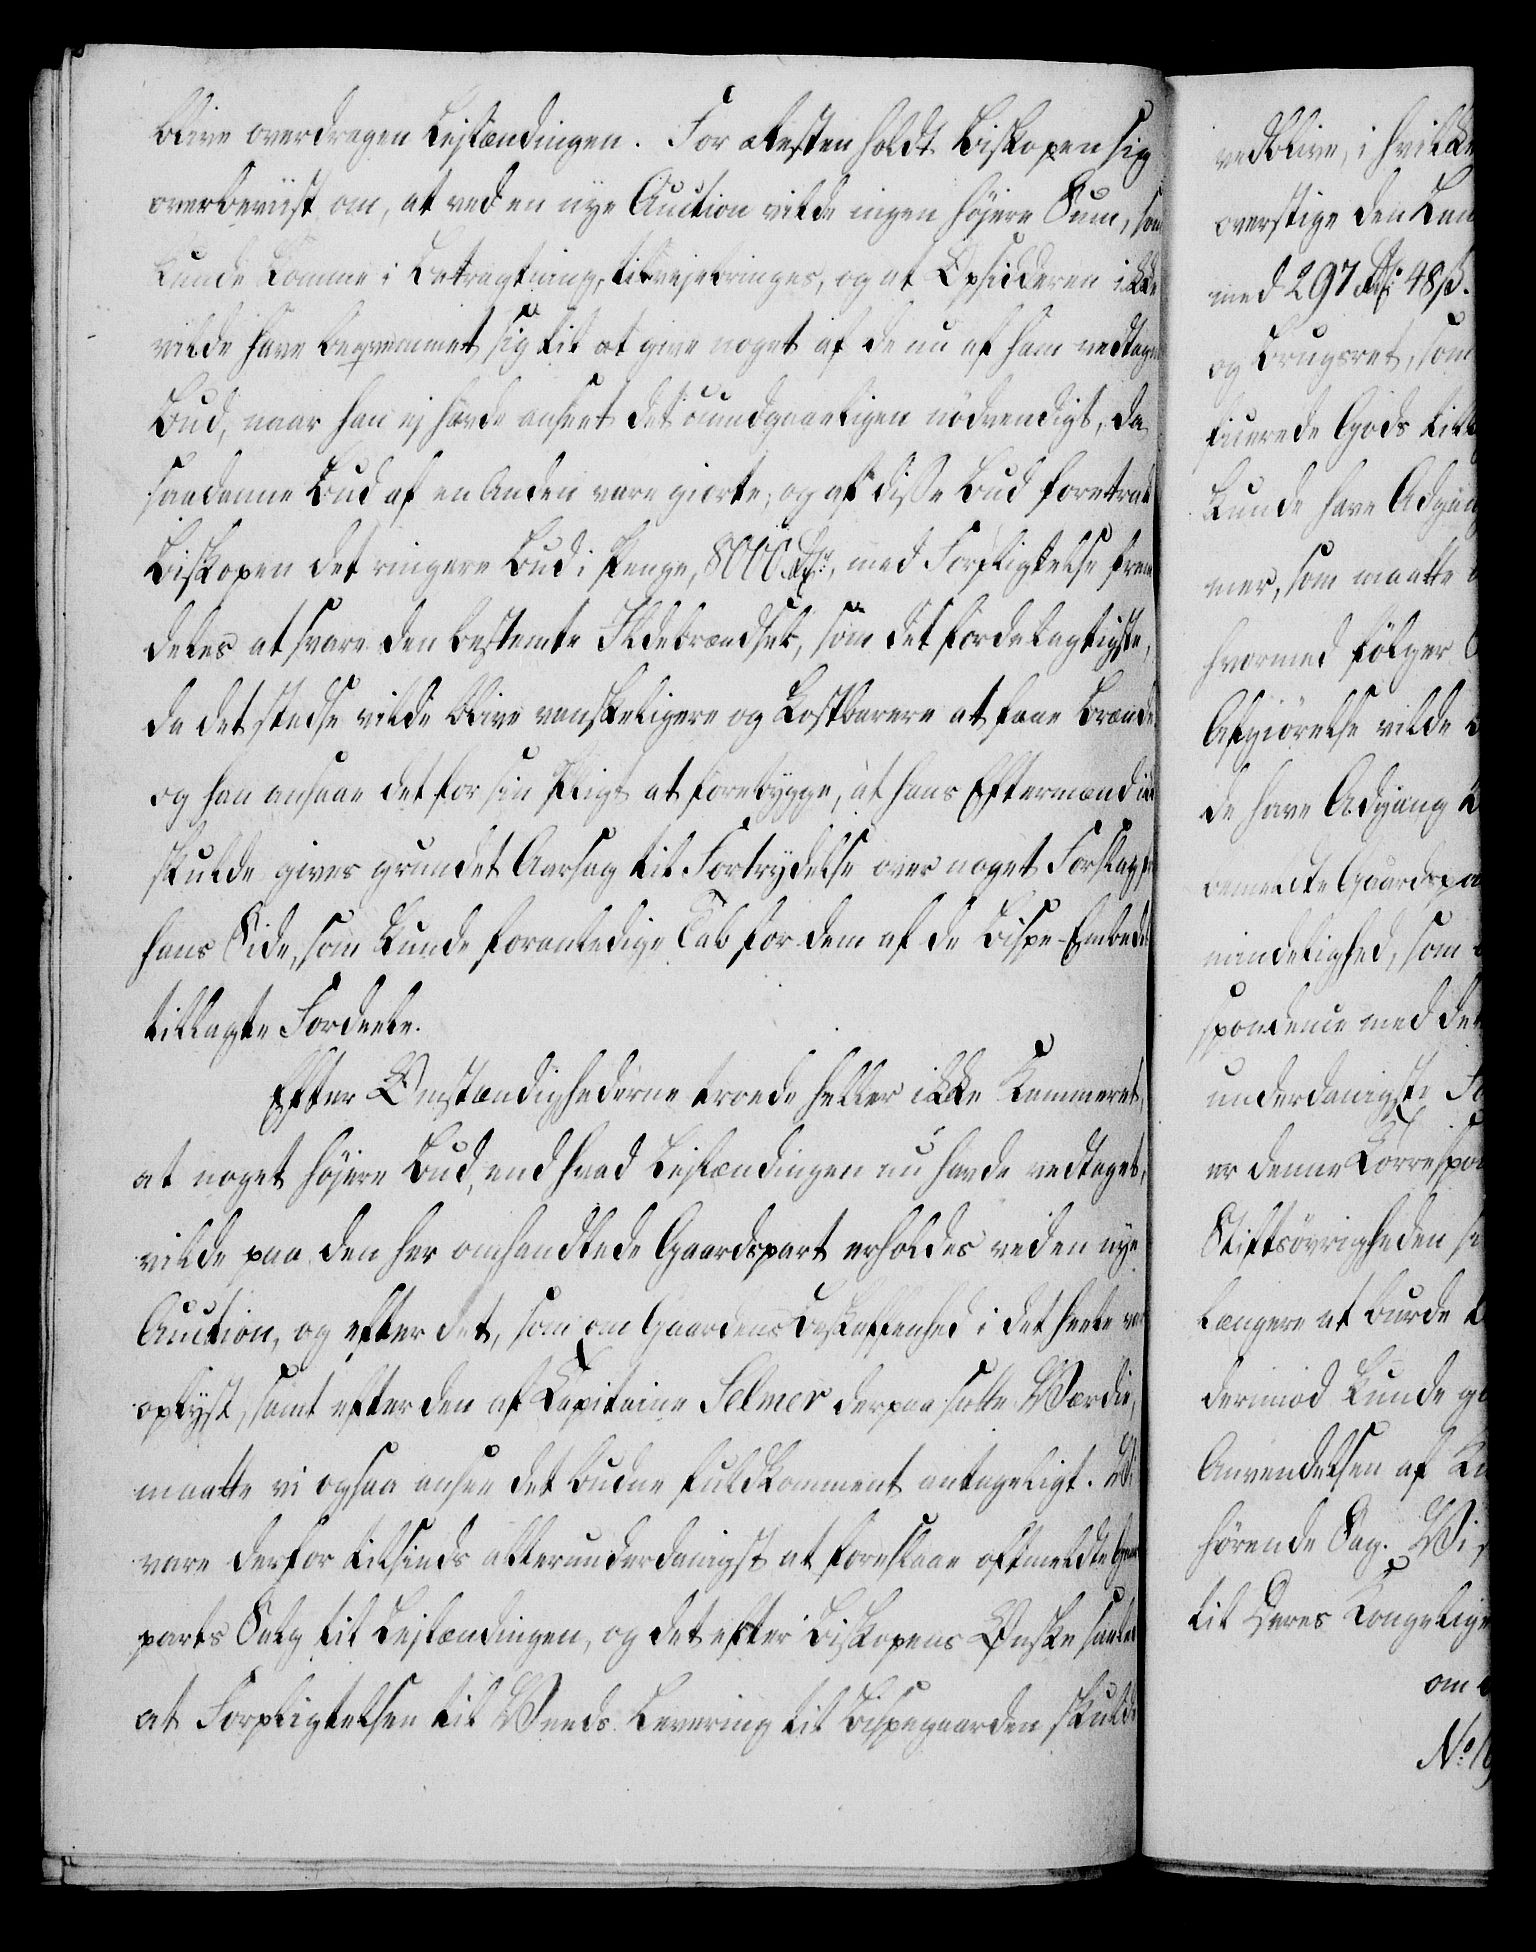 blive overdragen Lejlændingen. For Resten holdt Biskopen sig
overbeviist om, at ved en nye Auction vilde ingen højere Sum, som
kunde komme i Betragtning, tilvejebringes, og at Opsidderen ikke
vilde have beqvemmet sig til at give noget af de nu af ham vedtagne
Bud, naar han ej havde anseet det uundgaaeligen nödvendigt, da
saadanne Bud af en Anden vare giorte; og af disse Bud foretrak
Biskopen det ringere Bud i Penge, 8000 Rdr, med Forpligtelse frem
deles at svare den bestemte Ildebrændsel, som det fordelagtigste,
da det stedse vilde blive vanskeligere og kostbarere at faae Brænde
og han ansaae det for sin Pligt at forebygge, at hans Eftermænd
skulde gives grundet Aarsag til Fortrydelse over noget Forslag fra
hans Side, som kunde foranledige Tab for dem af de Bispe-Embedet
tillagte Fordeele.
Efter Omstændighederne troede heller ikke Kammeret,
at noget højere Bud, end hvad Lejlændingen nu havde vedtaget,
vilde paa den her omhandlede Gaardspart erholdes ved en nye
Auction, og efter det, som om Gaardens Beskaffenhed i det heele var
oplyst, samt efter den af Capitaine Selmer derpaa satte Værdie,
maatte vi ogsaa ansee det budne fuldkomment antageligt. Vi
vare derfor tilsinds allerunderdanigst at foreslaae oftmeldte Gaard
parts Salg til Lejlændingen, og det efter Biskopens Ønske saaledes
at Forpligtelsen til Veeds Levering til Bispegaarden skulde
vedblive, i hvilke
overstige den
med 297 Rdr 48 ß.
og Brugsret, som
ficerede Gods
kunde have Adgang
mer, som maatte
hvormed fölger
Afgiörelse vilde
de have Adgang
ommeldte Gaardspa
mindelighed, som
spondence med den
underdanigste
er denne Correspon
Stiftsövrigheden
længere at burde
derimod kunde
Anvendelsen af
hörende Sag. Vi
til Deres Kongelige
om
No 19